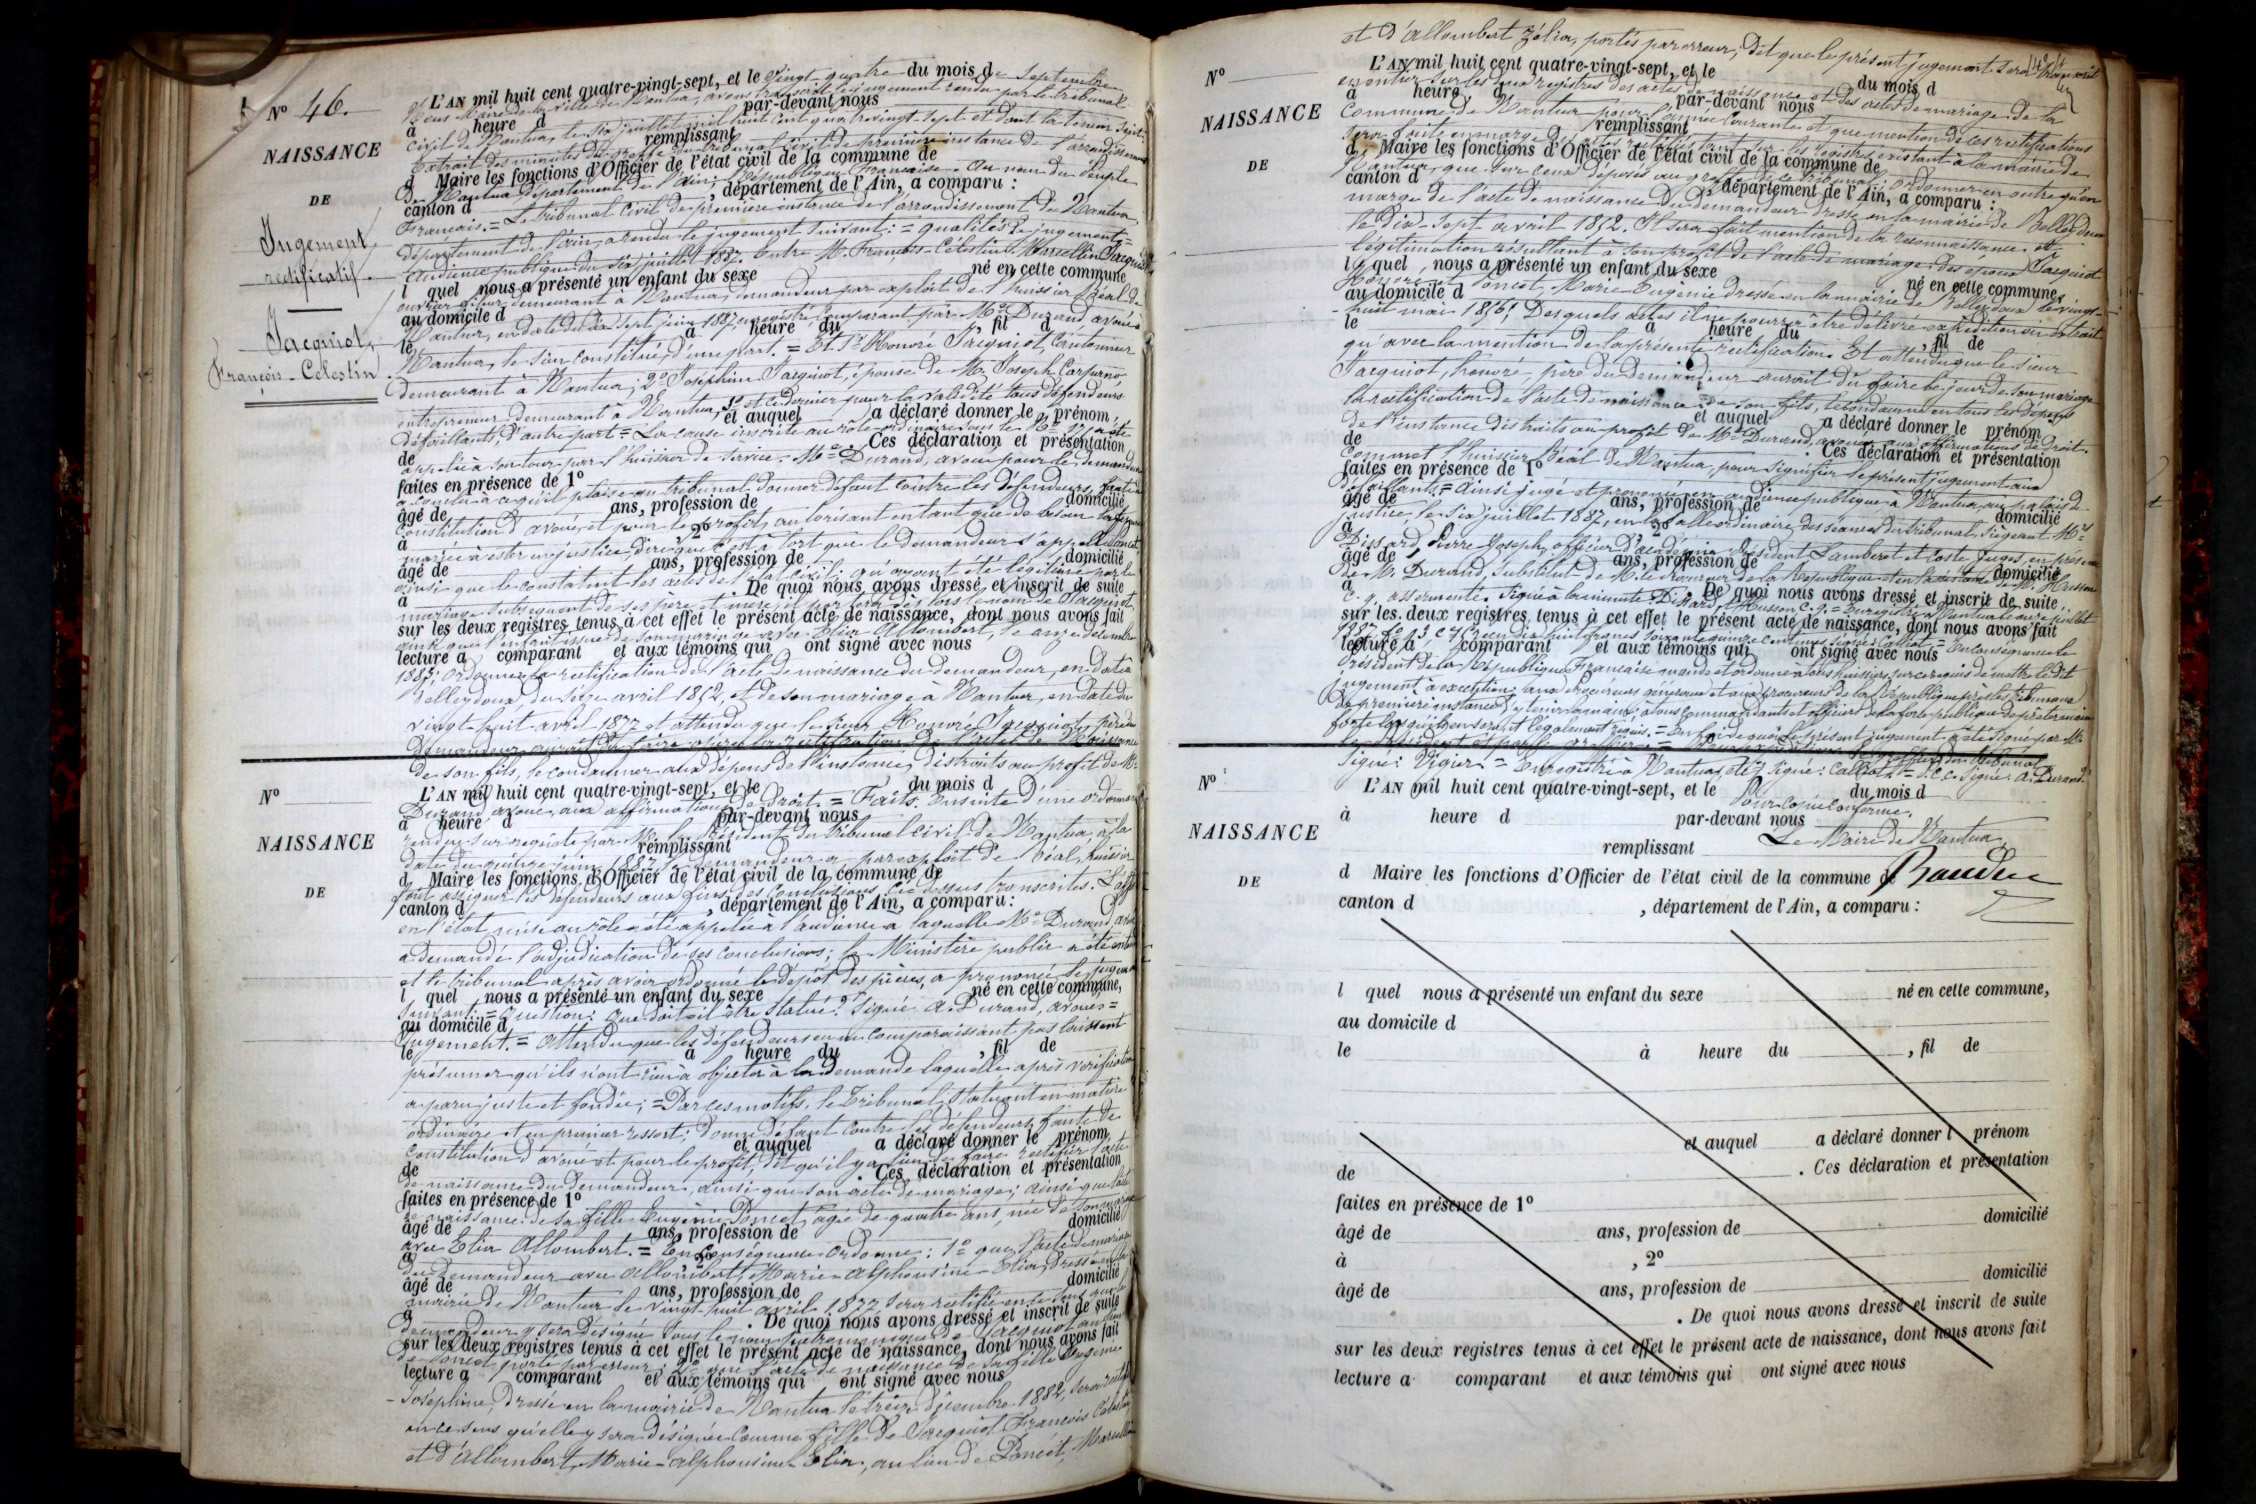 Nº 46.
NAISSANCE
DE
Jugement
rectificatif.
Jacquiot,
François-Célestin
L'AN mil huit cent quatre-vingt-sept, et le vingt-quatre du mois de septembre
Nous Maire de la ville de Nantua, avons transcrit le jugement rendu par le tribunal
à heure d par-devant nous
civil de Nantua, le six juillet mil huit cent quatre-vingt-sept et dont la teneur suit:
remplissant
Extrait des minutes du greffe du tribunal civil de première instance de l'arrondissement
d Maire les fonctions d'Officier de l'état civil de la commune de
de Nantua département de l'Ain, République Française. Au nom du Peuple
canton d , département de l'Ain, a comparu :
Français. = Le tribunal civil de première instance de l'arrondissement de Nantua
département de l'Ain, a rendu le jugement suivant: = qualités de jugement =
audience publique du six juillet 1887. Entre M. François Célestin Marcellin Jacquiot
l quel nous a présenté un enfant du sexe né en cette commune
demeurant à Nantua, demandeur par exploit de l'huissier Béal de
au domicile d
Nantua, en date du dix sept juin 1887, enregistré, comparant par Me Durand avoué à
le à heure du , fil d
Nantua, le sien constitué, d'une part. = Et 1º Honoré Jacquiot, Cordonnier
demeurant à Nantua; 2º Joséphine Jacquiot, épouse de M. Joseph
entrepreneur demeurant à Nantua, 3º et ce dernier pour la validité tous défendeurs
et auquel a déclaré donner le prénom
défaillants, d'autre part = La cause inscrite au rôle ordinaire sous le Nº
de . Ces déclaration et présentation
appelée à son tour par l'huissier de service. Me Durand, avoué pour le demandeur
faites en présence de 1º
a conclu à ce qu'il plaise au tribunal donner défaut contre les défendeurs, faute de
âgé de ans, profession de domicilié
constitution d'avoué, et pour le profit, autorisant en tant que de besoin la femme
à , 2º
mariée à ester en justice, dire que c'est à tort que le demandeur s'appelle Poncet,
âgé de ans, profession de domicilié
ainsi que le constatent les actes de l'état civil, qu'ayant été légitimé par le
à . De quoi nous avons dressé et inscrit de suite
mariage subséquent de ses père et mère, il portera dès lors le nom de Jacquiot,
sur les deux registres tenus à cet effet le présent acte de naissance, dont nous avons fait
ainsi que l'enfant issue de son mariage avec Elia Allombert, le
lecture a comparant et aux témoins qui ont signé avec nous
ordonner la rectification de l'acte de naissance du demandeur, en date à
Belleydoux, du avril 1852, et de son mariage à Nantua, en date du
vingt-huit avril 1877 et attendu que le sieur Honoré Jacquiot, père du
demandeur aurait dû faire opérer la rectification de l'acte de naissance
de son fils, le condamner aux dépens de l'instance, distraits au profit de Me
Nº
NAISSANCE
DE
L'AN mil huit cent quatre-vingt-sept, et le du mois d
Durand avoué, aux affirmations de droit. = Faits. Ensuite d'une ordonnance
à heure d par-devant nous
rendue sur requête par M. le Président du tribunal civil de Nantua, à la
remplissant
date du quinze juin 1887, le demandeur a par exploit de Béal, huissier
d Maire les fonctions d'Officier de l'état civil de la commune de
fait assigner les défendeurs aux fins des conclusions ci-dessus transcrites. L'affaire
canton d , département de l'Ain, a comparu :
en l'état, mise au rôle a été appelée à l'audience à laquelle Me Durand avoué
a demandé l'adjudication de ses conclusions; le Ministère public a été entendu
et le tribunal après avoir ordonné le dépôt des pièces, a prononcé le jugement
l quel nous a présenté un enfant du sexe né en cette commune,
suivant: = Question: Que doit-il être statué? Signé: A. Durand, avoué =
au domicile d
Jugement. = Attendu que les défendeurs en ne comparaissant pas laissent
le à heure du , fil de
présumer qu'ils n'ont rien à objecter à la demande laquelle après vérification
a paru juste et fondée; = Par ces motifs, le Tribunal, statuant en matière
ordinaire et en premier ressort; donne défaut contre les défendeurs faute de
et auquel a déclaré donner le prénom
constitution d'avoué et pour le profit, dit qu'il y a lieu de faire rectifier l'acte
de . Ces déclaration et présentation
de naissance du demandeur, ainsi que son acte de mariage; ainsi que l'acte
faites en présence de 1º
de naissance de sa fille Eugénie Poncet, âgée de quatre ans, née de son mariage
âgé de ans, profession de domicilié
avec Elia Allombert. = En conséquence ordonne: 1º que l'acte de mariage
à , 2º
du demandeur avec Allombert, Marie-Alphonsine-Elia, dressé en la
âgé de ans, profession de domicilié
mairie de Nantua le vingt-huit avril 1877 sera rectifié en ce sens que le
à . De quoi nous avons dressé et inscrit de suite
demandeur y sera désigné sous le nom patronymique de Jacquiot au lieu
sur les deux registres tenus à cet effet le présent acte de naissance, dont nous avons fait
de Poncet porté par erreur; 2º que l'acte de naissance de sa fille Eugénie
lecture a comparant et aux témoins qui ont signé avec nous
Joséphine, dressé en la mairie de Nantua le treize décembre 1882, sera rectifié
en ce sens qu'elle y sera désignée comme fille de Jacquiot François Célestin
et d'Allombert, Marie-Alphonsine-Elia, au lieu de Poncet, Marcellin
et d'Allombert Zélia, portés par erreur; dit que le présent jugement sera transcrit
Nº
NAISSANCE
DE
L'AN mil huit cent quatre-vingt-sept, et le du mois d
en entier sur les deux registres des actes de naissance et des actes de mariage de la
à heure d par-devant nous
commune de Nantua pour l'année courante et que mention de ces rectifications
remplissant
sera faite en marge des actes tant sur les registres existant à la mairie de
d Maire les fonctions d'Officier de l'état civil de la commune de
Nantua, que sur ceux déposés au greffe de ce tribunal; ordonne en outre qu'en
canton d , département de l'Ain, a comparu :
marge de l'acte de naissance du demandeur dressé en la mairie de Belleydoux
le dix-sept avril 1852. Il sera fait mention de la reconnaissance et
légitimation résultant à son profit de l'acte de mariage des époux Jacquiot
l quel , nous a présenté un enfant du sexe né en cette commune,
Honoré et Poncet, Marie Eugénie dressé en la mairie de Belleydoux le vingt-
au domicile d
huit mai 1856; Desquels actes il ne pourra être délivré expédition ou extrait
le à heure du , fil de
qu'avec la mention de la présente rectification. Et attendu que le sieur
Jacquiot, honoré, père du demandeur aurait dû faire le jour de son mariage
la rectification de l'acte de naissance de son fils, le condamne en tous les dépens
et auquel a déclaré donner le prénom
de l'instance distraits au profit de Me Durand, avoué, aux affirmations de droit.
de . Ces déclaration et présentation
Commet l'huissier Béal de Nantua, pour signifier le présent jugement aux
faites en présence de 1º
défaillants. = Ainsi jugé et prononcé en audience publique, à Nantua, au palais de
âgé de ans, profession de domicilié
justice, le six juillet 1887, en la salle ordinaire des séances du tribunal, Siégeant Mrs
à , 2º
Dissard, Pierre Joseph, officier d'académie Président Lamberet et Coste juges, en présence
âgé de ans, profession de domicilié
de M. Durand, Substitut de M. le Procureur de la République et en l'assistance de M. Husson
à . De quoi nous avons dressé et inscrit de suite
c. g. assermenté. Signé à la minute: Dissard et Husson c. g. = Enregistré à Nantua le juillet
sur les deux registres tenus à cet effet le présent acte de naissance, dont nous avons fait
lecture a comparant et aux témoins qui ont signé avec nous
Président de la République Française mande et ordonne à tous huissiers sur ce requis de mettre le dit
jugement à exécution; aux procureurs généraux et aux procureurs de la République près les tribunaux
de première instance d'y tenir la main; à tous commandants et officiers de la force publique de prêter main
forte lorsqu'ils en seront légalement requis. = En foi de quoi le présent jugement a été signé par M.
Signé: Vigier. = Enregistré à Nantua, etc. Signé: Callot. = P. C. C. Signé: A. Durand.
Nº
NAISSANCE
DE
L'AN mil huit cent quatre-vingt-sept, et le du mois d
Pour copie conforme.
à heure d par-devant nous
Le Maire de Nantua
remplissant
d Maire les fonctions d'Officier de l'état civil de la commune de
canton d , département de l'Ain, a comparu :
l quel nous a présenté un enfant du sexe né en cette commune,
au domicile d
le à heure du , fil de
et auquel a déclaré donner l prénom
de . Ces déclaration et présentation
faites en présence de 1º
âgé de ans, profession de domicilié
à , 2º
âgé de ans, profession de domicilié
. De quoi nous avons dressé et inscrit de suite
sur les deux registres tenus à cet effet le présent acte de naissance, dont nous avons fait
lecture a comparant et aux témoins qui ont signé avec nous